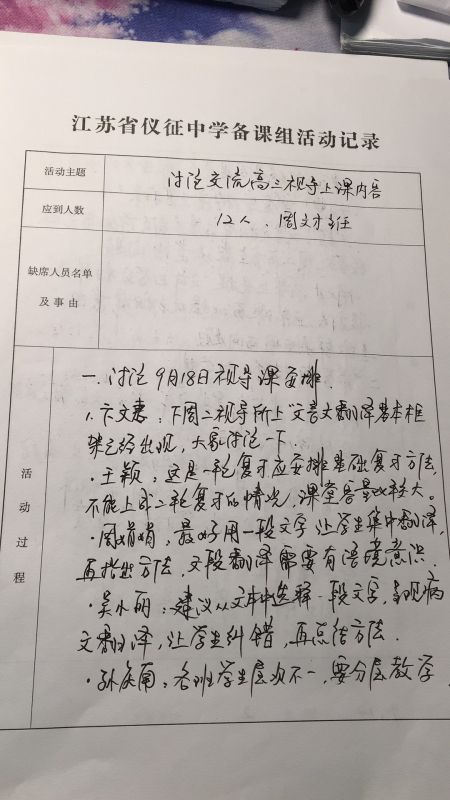 江苏省仪征中学备课组活动记录
活动主题
讨论交流高三视导上课内容
应到人数
12人、周文才主任
缺席人员名单
及事由
活动过程
一.讨论9月18日视导课安排.
1.卞文惠:下周二视导所上文言文翻译基本框
架已经出现,大家讨论一下.
·王颖:这是一轮复习应安排基础复习方法,
不能上成二轮复习的情况,课堂容量较大。
·周娟娟:最好用一段文字让学生集中翻译,
再指出方法,文段翻译需要有语境意识.
·吴小丽:建议从文本中选择一段文字,呈现病
文翻译,让学生纠错,再总结方法.
·孙 南:各班学生层次不一,要分层教学